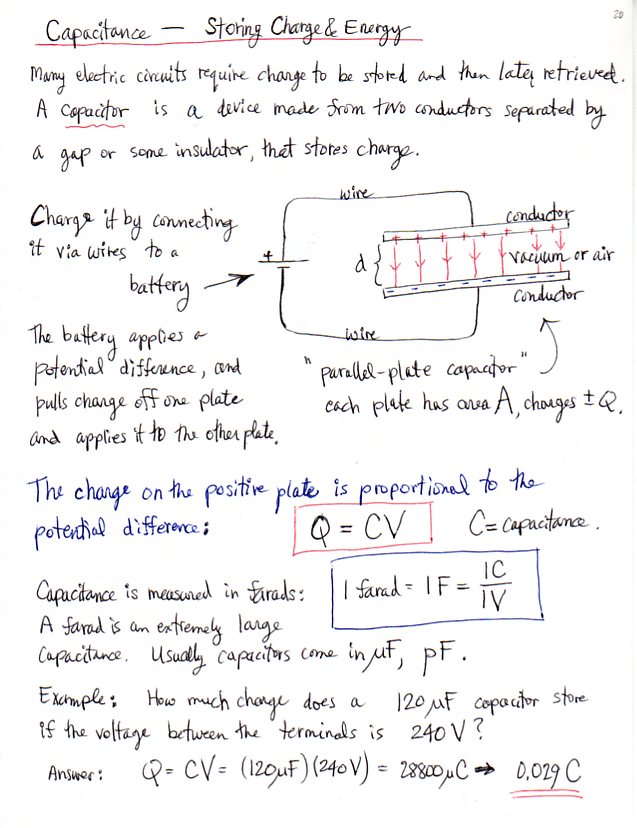 20
Capacitance — Storing Charge & Energy
Many electric circuits require charge to be stored and then later retrieved.
A capacitor is a device made from two conductors separated by
a gap or some insulator, that stores charge.
Charge it by connecting
it via wires to a
battery
wire
+
d
+ + + + + + + +
conductor
vacuum or air
- - - - - - - -
conductor
wire
The battery applies a
potential difference, and
pulls charge off one plate
and applies it to the other plate.
"parallel-plate capacitor"
each plate has area A, charges ±Q.
The charge on the positive plate is proportional to the
potential difference: Q = CV C = capacitance.
Capacitance is measured in farads: 1 farad = 1F = 1C/1V
A farad is an extremely large
capacitance. Usually capacitors come in μF, pF.
Example: How much charge does a 120 μF capacitor store
if the voltage between the terminals is 240 V?
Answer: Q = CV = (120μF)(240V) = 28800μC ⇒ 0.029 C